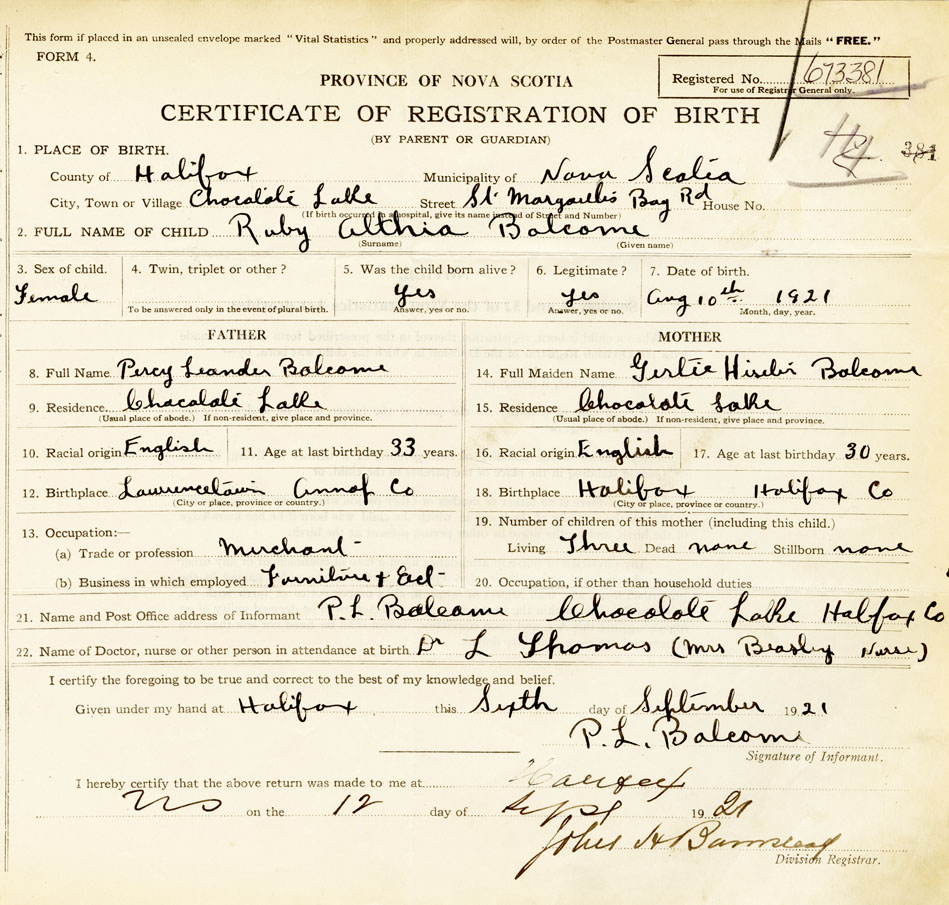 This form if placed in an unsealed envelope marked "Vital Statistics" and properly addressed will, by order of the Postmaster General pass through the Mails "FREE."
FORM 4.
PROVINCE OF NOVA SCOTIA
Registered No. 673381
For use of Registrar General only.
CERTIFICATE OF REGISTRATION OF BIRTH
(BY PARENT OR GUARDIAN)
381
1. PLACE OF BIRTH.
County of Halifax Municipality of Nova Scotia
City, Town or Village Chocolate Lake Street St Margarets Bay Rd House No.
(If birth occurred in a hospital, give its name instead of Street and Number)
2. FULL NAME OF CHILD Ruby Althia Balcome
(Surname) (Given name)
3. Sex of child. 4. Twin, triplet or other? 5. Was the child born alive? 6. Legitimate? 7. Date of birth.
Female Yes Yes Aug 10th 1921
To be answered only in the event of plural birth. Answer, yes or no. Answer, yes or no. Month, day, year.
FATHER MOTHER
8. Full Name Percy Leander Balcome 14. Full Maiden Name Gertie Balcome
9. Residence Chocolate Lake 15. Residence Chocolate Lake
(Usual place of abode.) If non-resident, give place and province. (Usual place of abode.) If non-resident, give place and province.
10. Racial origin English 11. Age at last birthday 33 years. 16. Racial origin English 17. Age at last birthday 30 years.
12. Birthplace Lawrencetown Annap Co 18. Birthplace Halifax Halifax Co
(City or place, province or country.) (City or place, province or country.)
13. Occupation:— 19. Number of children of this mother (including this child.)
(a) Trade or profession Merchant Living Three Dead none Stillborn none
(b) Business in which employed Furniture + Ect 20. Occupation, if other than household duties
21. Name and Post Office address of Informant P. L. Balcome Chocolate Lake Halifax Co
22. Name of Doctor, nurse or other person in attendance at birth Dr L Thomas (Mrs Beasley Nurse)
I certify the foregoing to be true and correct to the best of my knowledge and belief.
Given under my hand at Halifax this Sixth day of September 1921
P. L. Balcome
Signature of Informant.
I hereby certify that the above return was made to me at Halifax
NS on the 12 day of Sept 1921
John H Barnstead
Division Registrar.